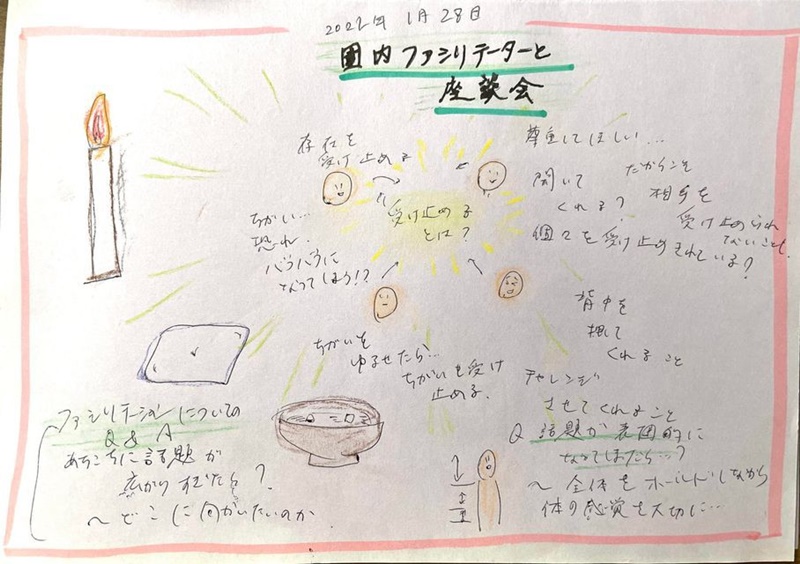 2022年 1月28日
国内ファシリテーターと
座談会
存在を
受け止める
尊重してほしい…
聞いて
くれる?
だからこそ
相手を
受け止められ
ないことも。
個々を受け止めきれている?
受け止める
とは?
ちがい…
恐れ.
バラバラに
なってしまう!?
背中を
押して
くれること
ちがいを
ゆるせたら…
ちがいを受け
止める.
チャレンジ
させてくれること
ファシリテーションについての
Q & A
あちこちに話題が
広がりすぎたら?
〜どこに向かいたいのか
Q 話題が表面的に
なってしまったら…?
〜 全体をホールドしながら
体の感覚を大切に…